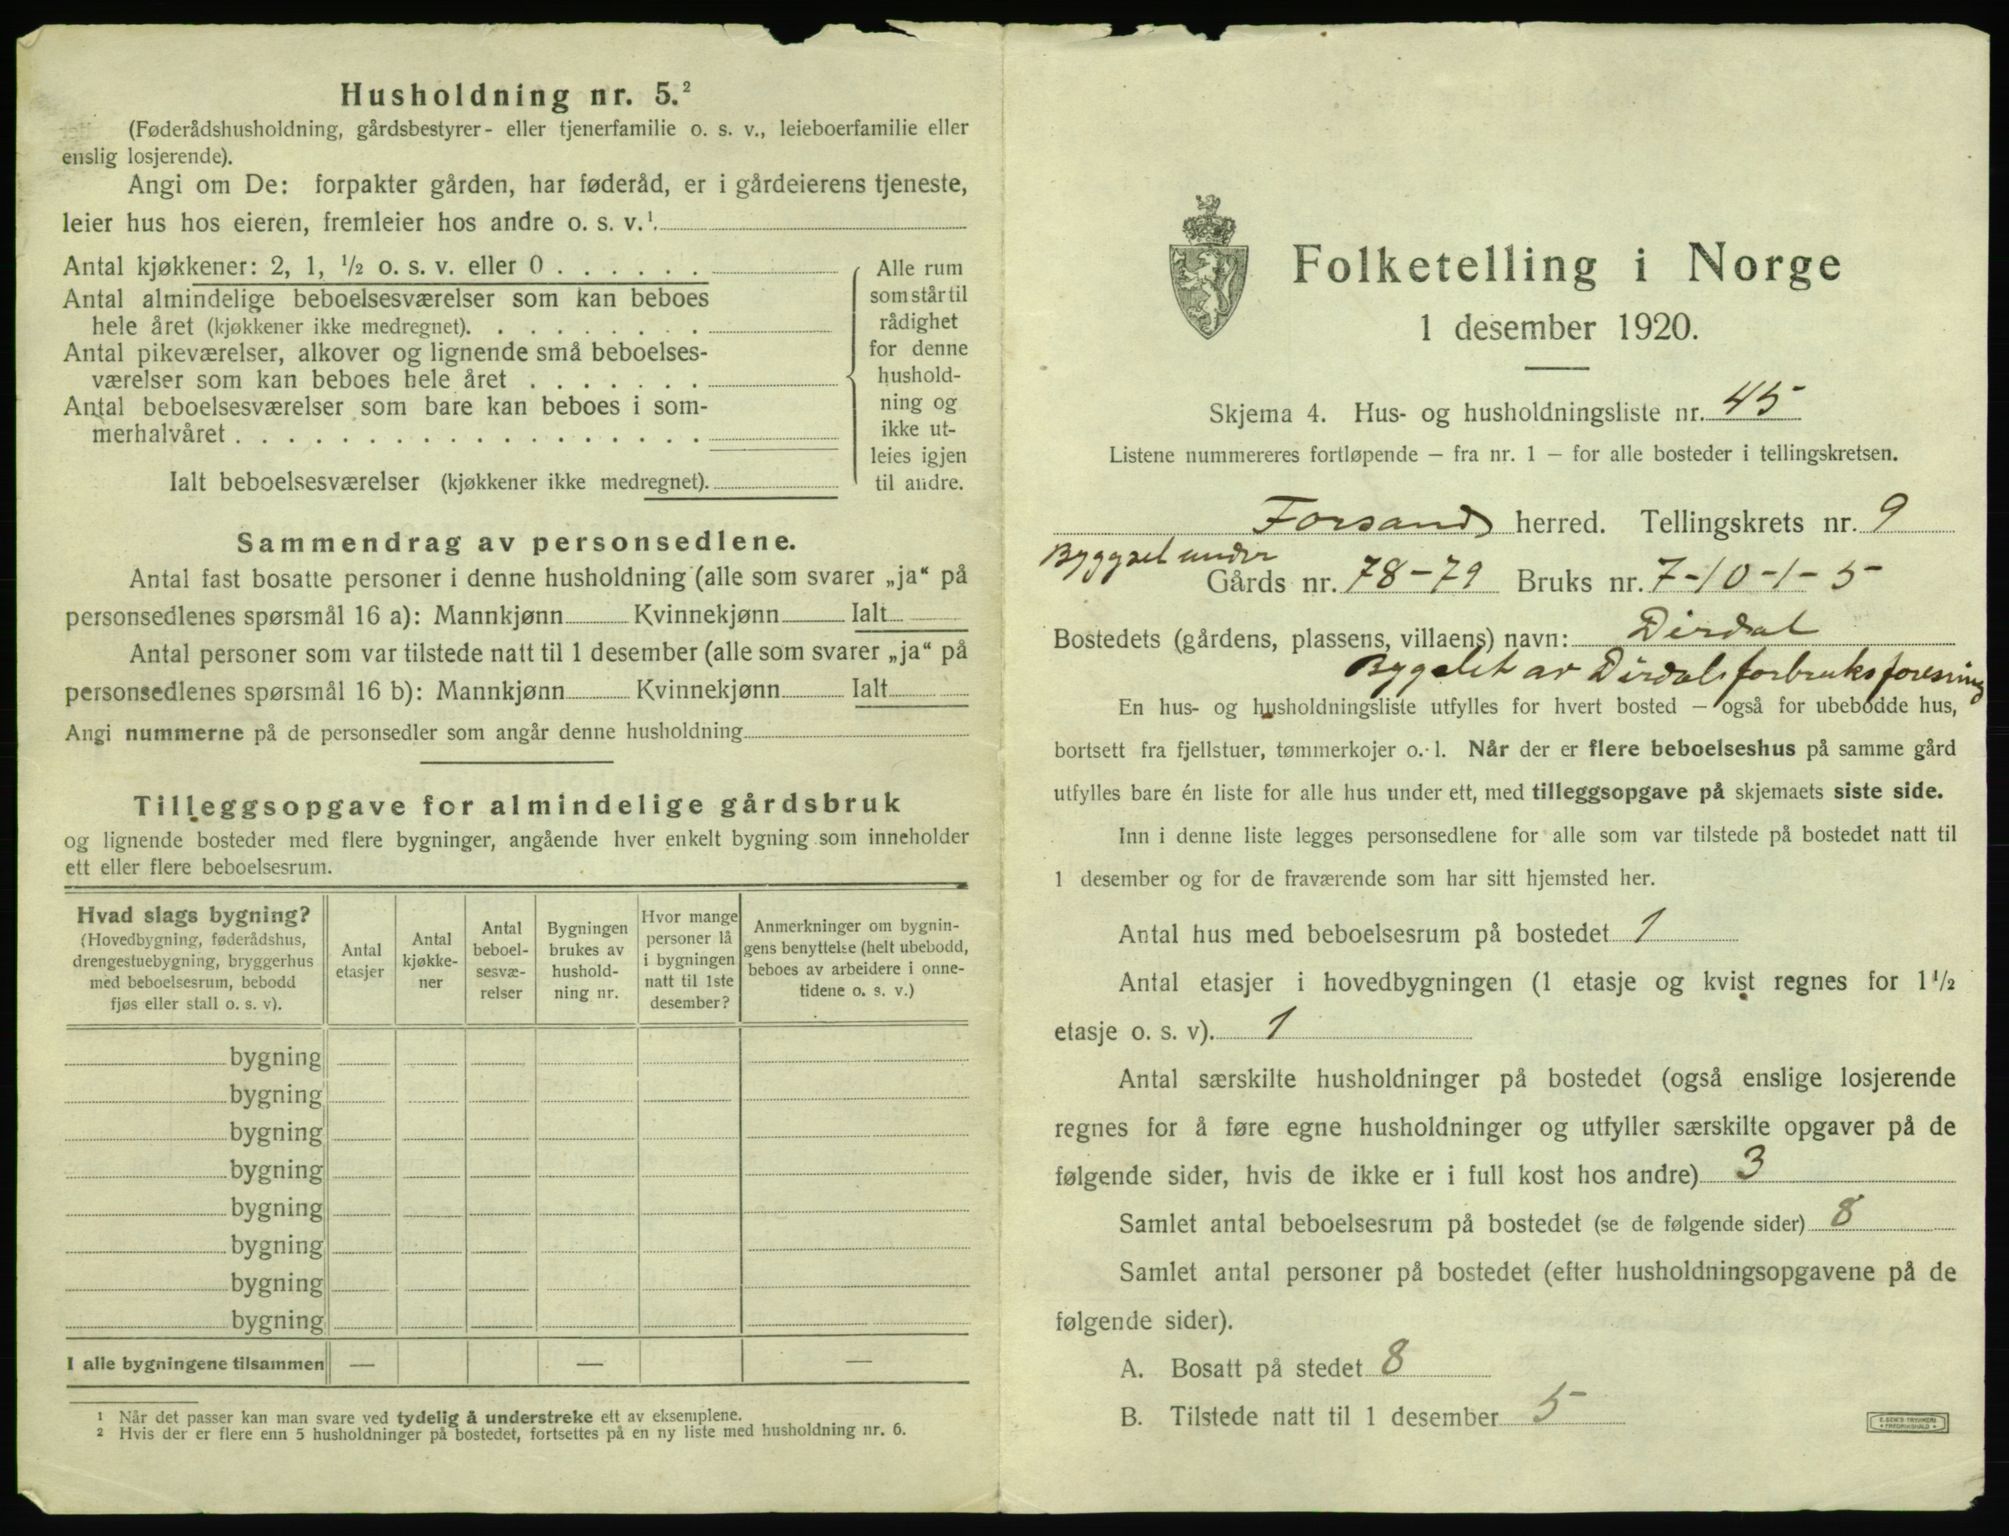 Husholdning nr. 5.²
(Føderådshusholdning, gårdsbestyrer- eller tjenerfamilie o. s. v., leieboerfamilie eller
enslig losjerende).
Angi om De: forpakter gården, har føderåd, er i gårdeierens tjeneste,
leier hus hos eieren, fremleier hos andre o. s. v.¹
Antal kjøkkener: 2, 1, ½ o. s. v. eller 0 . . . . . .
Antal almindelige beboelsesværelser som kan beboes
hele året (kjøkkener ikke medregnet). . . . . . . . .
Antal pikeværelser, alkover og lignende små beboelses-
værelser som kan beboes hele året . . . . . . .
Antal beboelsesværelser som bare kan beboes i som-
merhalvåret . . . . . . . . . . . . . . . . . .
Ialt beboelsesværelser (kjøkkener ikke medregnet).
Alle rum
som står til
rådighet
for denne
hushold-
ning og
ikke ut-
leies igjen
til andre.
Sammendrag av personsedlene.
Antal fast bosatte personer i denne husholdning (alle som svarer „ja“ på
personsedlenes spørsmål 16 a): Mannkjønn Kvinnekjønn Ialt
Antal personer som var tilstede natt til 1 desember (alle som svarer „ja“ på
personsedlenes spørsmål 16 b): Mannkjønn Kvinnekjønn Ialt
Angi nummerne på de personsedler som angår denne husholdning
Tilleggsopgave for almindelige gårdsbruk
og lignende bosteder med flere bygninger, angående hver enkelt bygning som inneholder
ett eller flere beboelsesrum.
Hvad slags bygning?
(Hovedbygning, føderådshus,
drengestuebygning, bryggerhus
med beboelsesrum, bebodd
fjøs eller stall o. s. v).
Antal
etasjer
Antal
kjøkke-
ner
Antal
beboel-
sesvæ-
relser
Bygningen
brukes av
hushold-
ning nr.
Hvor mange
personer lå
i bygningen
natt til 1ste
desember?
Anmerkninger om bygnin-
gens benyttelse (helt ubebodd,
beboes av arbeidere i onne-
tidene o. s. v.)
bygning
bygning
bygning
bygning
bygning
bygning
bygning
bygning
I alle bygningene tilsammen — — —
¹ Når det passer kan man svare ved tydelig å understreke ett av eksemplene.
² Hvis der er flere enn 5 husholdninger på bostedet, fortsettes på en ny liste med husholdning nr. 6.
Folketelling i Norge
1 desember 1920.
Skjema 4. Hus- og husholdningsliste nr. 45
Listene nummereres fortløpende – fra nr. 1 – for alle bosteder i tellingskretsen.
Forsand herred. Tellingskrets nr. 9
Byggsel under
Gårds nr. 78-79 Bruks nr. 7-10-1-5
Bostedets (gårdens, plassens, villaens) navn: Dirdal
Bygslet av Dirdals forbruksforening
En hus- og husholdningsliste utfylles for hvert bosted – også for ubebodde hus,
bortsett fra fjellstuer, tømmerkojer o. l. Når der er flere beboelseshus på samme gård
utfylles bare én liste for alle hus under ett, med tilleggsopgave på skjemaets siste side.
Inn i denne liste legges personsedlene for alle som var tilstede på bostedet natt til
1 desember og for de fraværende som har sitt hjemsted her.
Antal hus med beboelsesrum på bostedet 1
Antal etasjer i hovedbygningen (1 etasje og kvist regnes for 1½
etasje o. s. v). 1
Antal særskilte husholdninger på bostedet (også enslige losjerende
regnes for å føre egne husholdninger og utfyller særskilte opgaver på de
følgende sider, hvis de ikke er i full kost hos andre) 3
Samlet antal beboelsesrum på bostedet (se de følgende sider) 8
Samlet antal personer på bostedet (efter husholdningsopgavene på de
følgende sider).
A. Bosatt på stedet 8
B. Tilstede natt til 1 desember 5